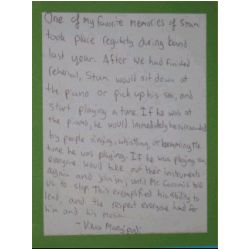 One of my favorite memories of Stum
took place regularly during band
last year. After we had finished
rehersal, Stum would sit down at
the piano or pick up his sax, and
start playing a tune. If he was at
the piano, he would immediately be surrounded
by people singing, whistling, or
tune he was playing. If he was playing sax
everyone would take out their instruments
again and join in, until Mr.
us to stop. This exemplified his ability to
lead, and the respect everyone had for
him and his music.